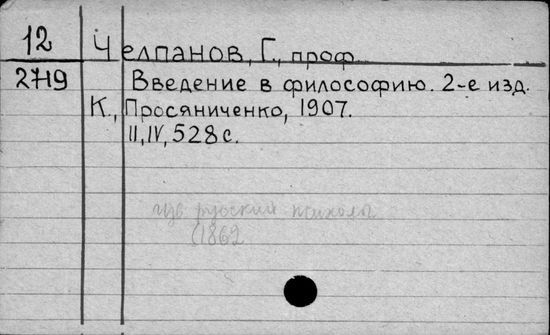 12
Челпанов, Г., проф.
2719
Введение в философию. 2-е изд.
К., Просяниченко, 1907.
II, IV, 528 с.
русский психолог
(1862